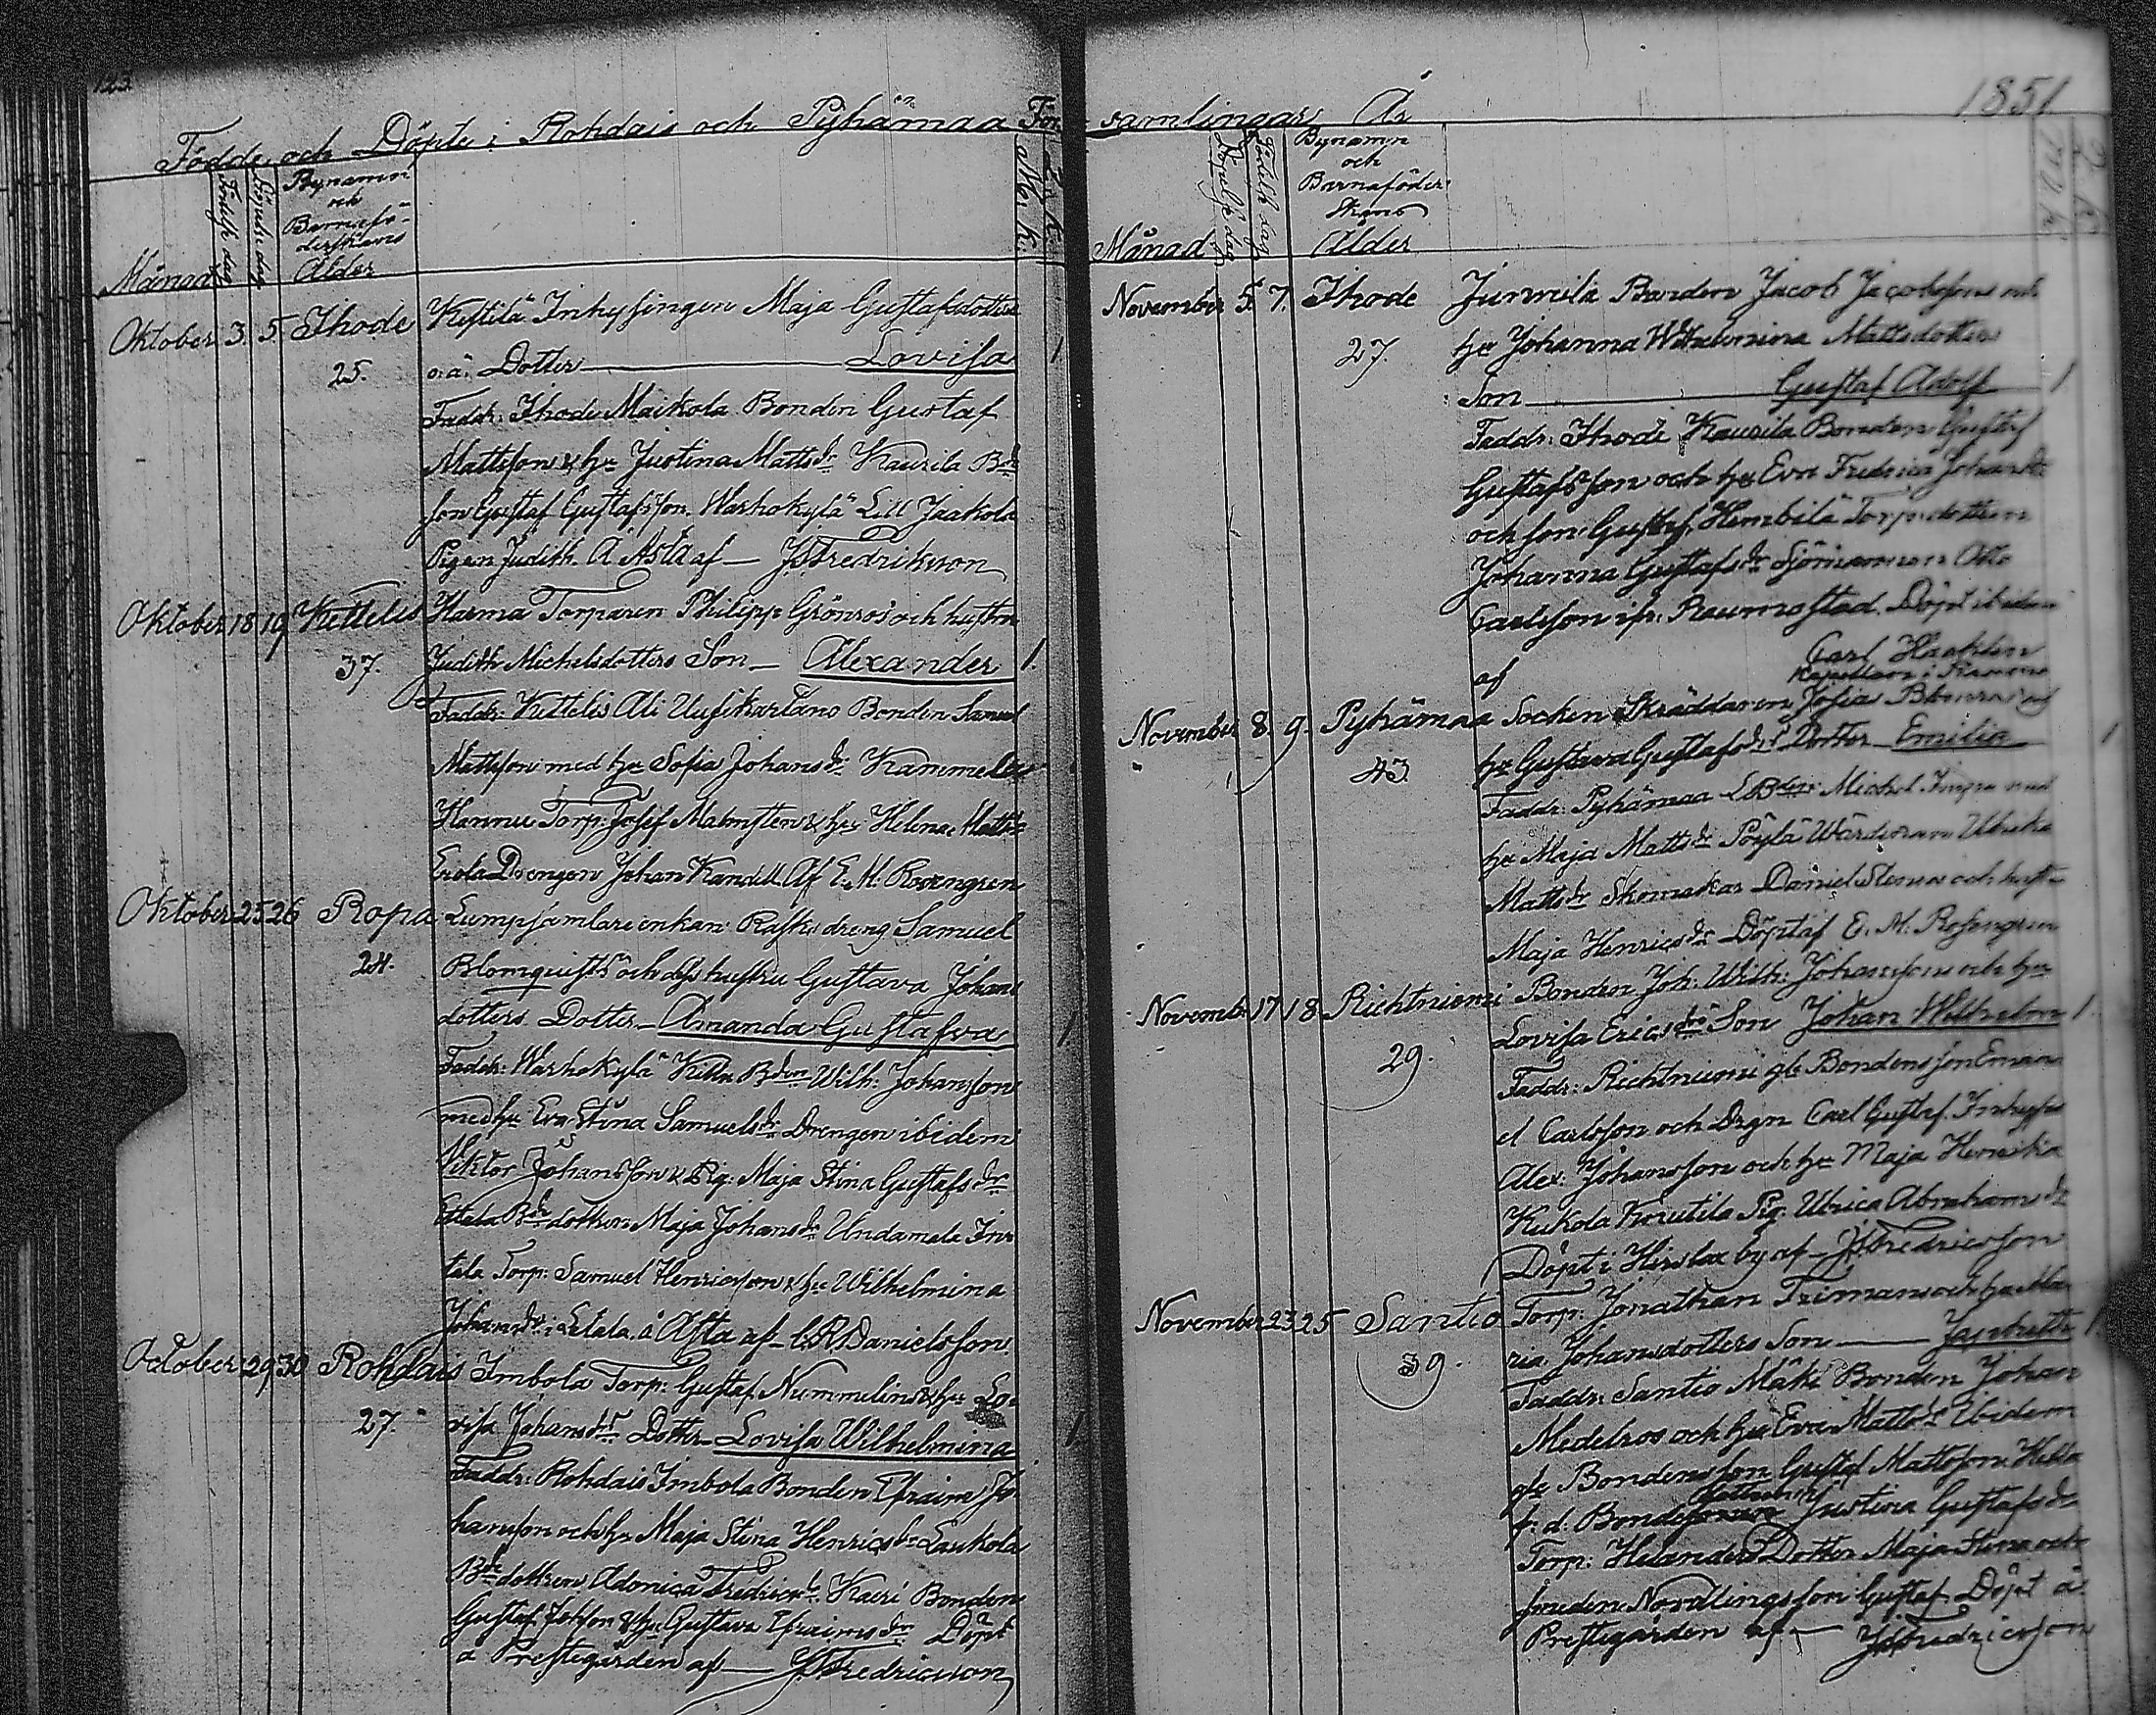 123.
Födde och Döpte i Rohdais och Pyhämaa För
Månad
Födelse dag
Döpelse dag
Bynamn
och
Barnafö-
derskans
Ålder
M. k.
Q. k.
Oktober 3. 5. Ihode Kestilä Inhysingen Maja Gustafsdotters
25. o. ä. Dotter Lovisa 1
Faddr: Ihode Maikola Bonden Gustaf
Mattsson & hu Justina Matts dr Kaurila Bde
son Gustaf Gustafsson. Warhokylä Lill Jaakola
Pigan Judith. A Asta af — JFredriksson
Oktober 18 19 Kettelis Harma Torparen Philipp Grönros och hustru
37. Judith Michelsdotters Son — Alexander 1.
Faddr: Kettelis Ali Uusikartano Bonden Samuel
Mattsson med hu Sofia Johans dr Kammela
Hannu Torp: Josef Malmsten & hu Helena Matts dr
Erola Drengen Johan Kandell Af E. M. Rosengren
Oktober 25 26 Ropa Lumpsamlare enkan Rasku dreng Samuel
24. Blomquists och dess hustru Gustava Johans
dotters Dotter — Amanda Gustafva 1
Faddr: Warhokylä Bden Wilh: Johansson
med hu Eva Stina Samuels dr Drengen ibidem
Viktor Johansson & Pig: Maja Stina Gustafs dr
Bde dottren Maja Johans dr Undamala
tala Torp: Samuel Henricsson & hu Wilhelmina
Johans dr i Letala å Asta af — Danielsson
October 29 30 Rohdais Imbola Torp: Gustaf Nummelins & hu Lo-
27. visa Johans drs Dotter — Lovisa Wilhelmina 1
Faddr: Rohdais Imbola Bonden Efraim Jo
hansson och hu Maja Stina Henrics dr Laukola
Bde dottren Adonica Fredrics dr Kairi Bonden
Gustaf Johsson & hu Gustava Efraims dr Döpt
å Prestegården af — JFredricsson
samlingar År 1851
Månad
Födelse dag
Döpelse dag
Bynamn
och
Barnaföder-
skans
Ålder
M. k.
Q. k.
November 5. 7. Ihode Junnila Bonden Jacob Jacobssons och
27. hu Johanna Wilhelmina Mattsdotters
Son Gustaf Adolf 1
Faddr: Ihode Kaurila Bonden Gustaf
Gustafsson och hu Eva Fredrica Johans dr
och son Gustaf, Hembilä Torpdottren
Johanna Gustafs dr Sjömannen Otto
Carlsson ifr. Raumostad. Döpt ibidem
af Carl
Kapellan i Raumo
November 8. 9. Pyhämaa Socken Skräddaren Josia Blomros och
43 hu Gustava Gustafs drs Dotter Emilia 1
Faddr: Pyhämaa Michel
hu Maja Matts dr Pöylä Wärdinnan Ulrika
Matts dr Skomakar Daniel Stenros och hustru
Maja Henrics dr Döpt af E. M. Rosengren
November 17 18 Richtniemi Bonden Joh: Wilh: Johanssons och hu
29. Lovisa Erics drs Son Johan Wilhelm 1.
Faddr: Richtniemi gle Bondens son Eman
el Carlsson och Drgn Carl Gustaf. Inhyses
Alex: Johansson och hu Maja Henrika
Kukola Knutila Pig: Ulrica Abrahams dr
Döpt i Hirslax by af — JFredricsson
November 23 25 Santio Torp: Jonathan Trimans och hu Ma
39. ria Johansdotters Son — Japhett 1.
Faddr: Santio Mäki Bonden Johan
Medelros och hu Eva Matts dr Ibidem
gle Bondens son Gustaf Mattsson.
f. d. Justina Gustafs dr
Torp: Helanders Dotter Maja Stina och
Smeden Nordlings son Gustaf. Döpt å
Prestegården af — JFredricsson